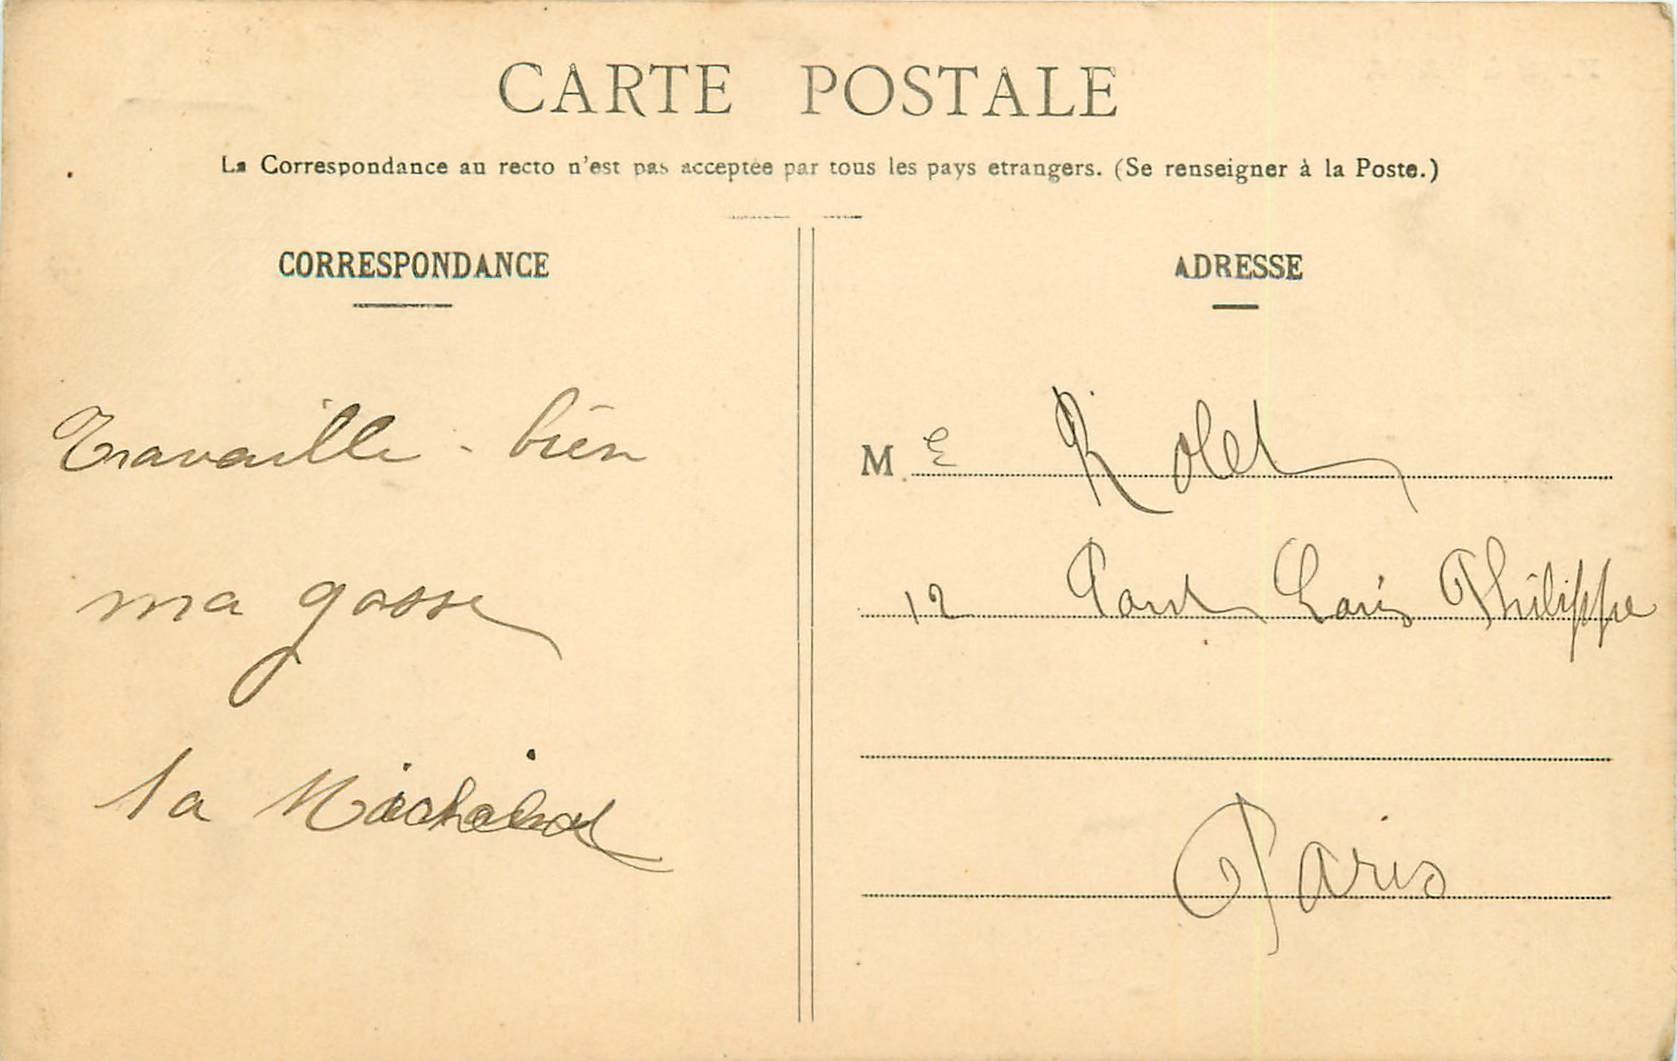 CARTE POSTALE
La Correspondance au recto n'est pas acceptée par tous les pays etrangers. (Se renseigner à la Poste.)
CORRESPONDANCE
ADRESSE
Travaille - bien
ma gosse
la
M e Rolet
12 Pont Louis Philippe
Paris